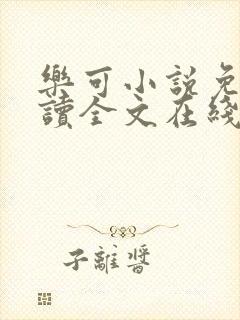 樂可小說免
讀全文在綫
子離醬